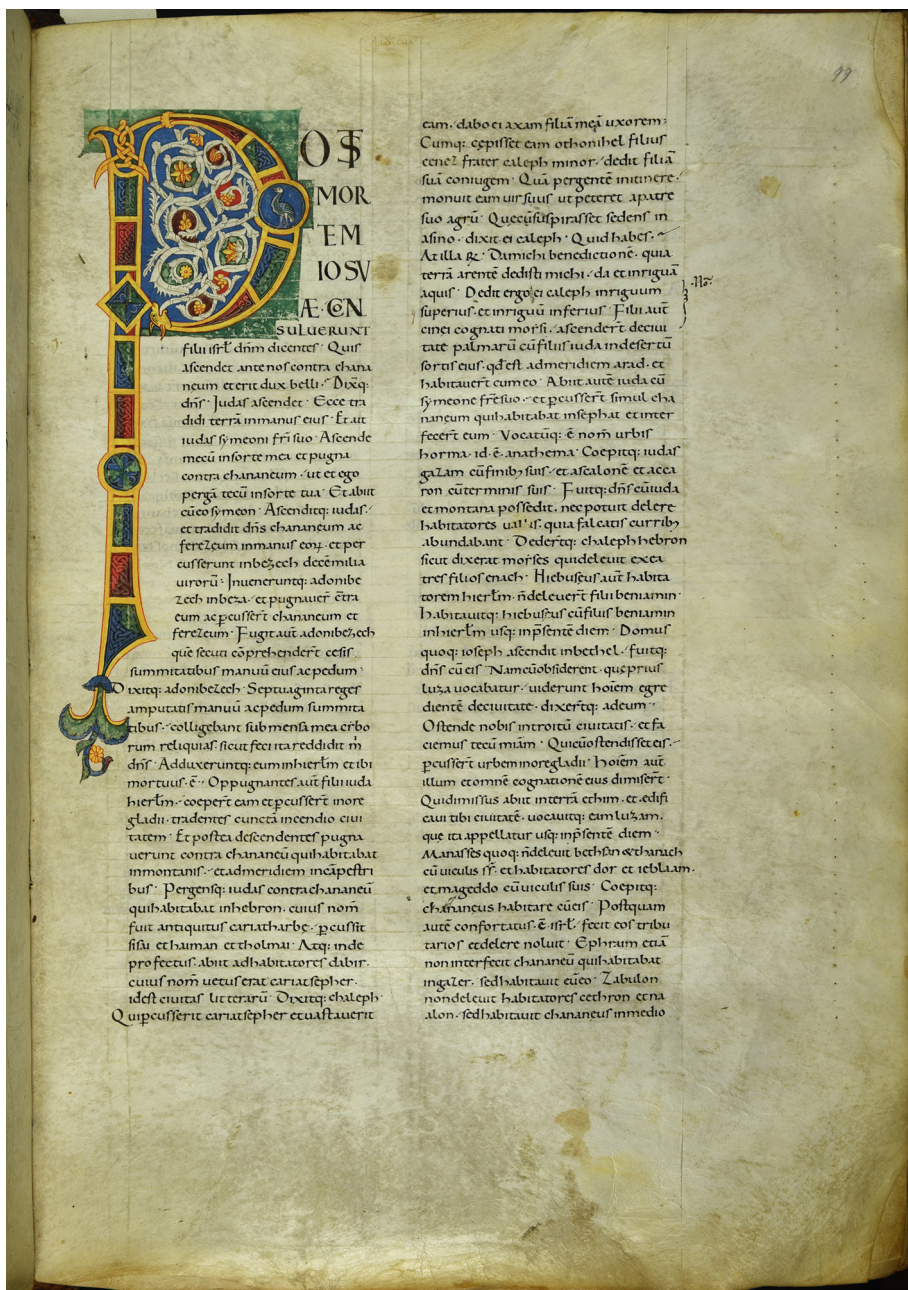 99
POST
MOR
TEM
IOSU
Æ·CON
SULUERUNT
filii isrł dñm dicentes· Quis
ascendet ante nos contra chana
neum et erit dux belli·́ Dixq;
dñs· Judas ascendet· Ecce tra
didi terrā in manus eius· Et ait
iudas symeoni fr̄i suo· Ascende
mecū in sorte mea et pugna
contra chananeum·́ ut et ego
pergā tecū in sorte tua· Et abiit
cū eo symeon· Ascenditq; iudas·́
et tradidit dñs chananeum ac
ferezeum in manus eoꝝ· et per
cusserunt in bezech decē milia
uirorū· Inueneruntq; adonibe
zech in beza·́ et pugnauer̄ c̄tra
eum ac ꝑcusser̄t chananeum et
ferezeum· Fugit aut̄ adonibezech
que secuti cōprehender̄t cęsis
summitatibus manuū eius ac pedum·
Dixitq; adonibezech· Septuaginta reges
amputatis manuū ac pedum summita
tibus·́ colligebant sub mensa mea cibo
rum reliquias sicut feci ita reddidit m̄
dñs· Adduxeruntq; eum in hierłm et ibi
mortuus·ē·· Oppugnantes aut̄ filii iuda
hierłm·́ ceper̄t eam et ꝑcusser̄t in ore
gladii· tradentes cunctā incendio ciui
tatem· Et postea descendentes pugna
uerunt contra chananeū qui habitabat
in montanis·́ et ad meridiem in cāpestri
bus· Pergensq; iudas contra chananeū
qui habitabat in hebron· cuius nom̄
fuit antiquitus cariatharbe·́ ꝑcussit
sisai et haiman et tholmai· Atq; inde
profectus· abiit ad habitatores dabir·
cuius nom̄ uetus erat cariatsepher·
id est ciuitas litterarū· Dixitq; chaleph·
Qui ꝑcusserit cariatsepher et uastauerit
eam·́ dabo ei axam filiā meā uxorem·
Cumq; cępisset eam othonihel filius
cenez frater caleph minor·́ dedit filiā
suā coniugem· Quā pergentē in itinere·́
monuit eam uir suus ut peteret a patre
suo agrū· Que cū suspirasset sedens in
asino· dixit ei caleph· Quid habes·
At illa R̄· Da michi benedictionē· quia
terrā arentē dedisti michi·́ da et inriguā
aquis· Dedit ergo ei caleph inriguum
superius· et inriguū inferius· Filii aut̄
cinei cognati moysi·́ ascender̄t de ciui
tate palmarū cū filiis iuda in desertū
sortis eius· qđ est ad meridiem arad· et
habitauer̄t cum eo· Abiit autē iuda cū
symeone fr̄e suo·́ et ꝑcusser̄t simul cha
naneum qui habitabat in sephat et inter
fecer̄t eum· Vocatūq; ē nom̄ urbis
horma· id·ē· anathema· Coepitq; iudas
gazam cū finibꝫ suis·́ et ascalonē et acca
ron cū terminis suis· Fuitq; dñs cū iuda
et montana possedit· nec potuit delere
habitatores uallis· quia falcatis curribꝫ
abundabant· Dedert̄q; chaleph hebron
sicut dixerat moyses qui deleuit ex ea
tres filios enach· Hiebuseus aut̄ habita
torem hierłm· ñ deleuer̄t filii beniamin·
habitauitq; hiebuseus cū filiis beniamin
in hierłm usq; in p̄sentē diem· Domus
quoq; ioseph ascendit in bethel·́ fuitq;
dñs cū eis· Nam cū obsiderent· que prius
luza uocabatur·́ uiderunt hōiem egre
dientē de ciuitate· dixert̄q; ad eum·
Ostende nobis introitū ciuitatis·́ et fa
ciemus tecū miām· Qui cū ostendisset eis·
ꝑcusser̄t urbem in ore gladii· Hōiem aut̄
illum et omnē cognationē eius dimiser̄t·
Qui dimissus abiit in terrā ethim· et edifi
cauit ibi ciuitatē· uocauitq; eam luzam·
que ita appellatur usq; in p̄sentē diem·
Manasses quoq; ñ deleuit bethsan & thanach
cū uiculis ss̄· et habitatores dor et ieblaam·
et mageddo cū uiculis suis· Coepitq;
chananeus habitare cū eis· Postquam
autē confortatus·ē· isrł·́ fecit eos tribu
tarios et delere noluit· Ephraim etiā
non interfecit chananeū qui habitabat
in gazer· sed habitauit cū eo· Zabulon
non deleuit habitatores cethron et na
alon· sed habitauit chananeus in medio